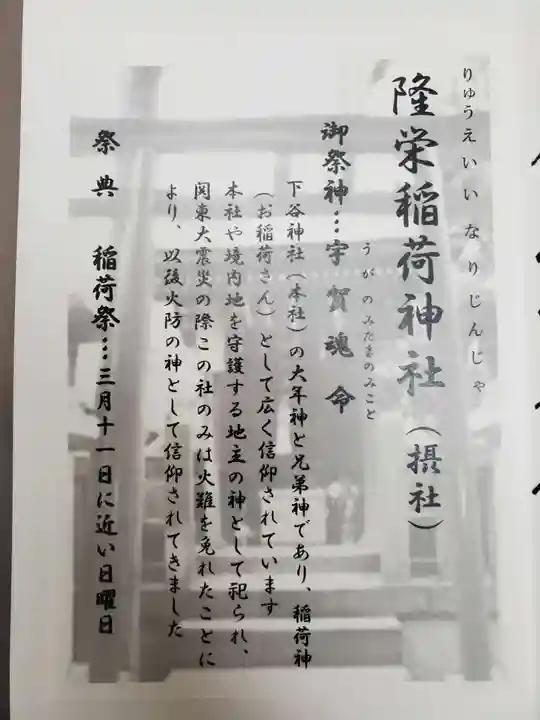 りゅうえいいなりじんじゃ
隆栄稲荷神社(摂社)
御祭神…宇賀魂命
うがのみたまのみこと
下谷神社(本社)の大年神と兄弟神であり、稲荷神
(お稲荷さん)として広く信仰されています
本社や境内地を守護する地主の神として祀られ、
関東大震災の際この社のみは火難を免れたことに
より、以後火防の神として信仰されてきました
祭典 稲荷祭…三月十一日に近い日曜日